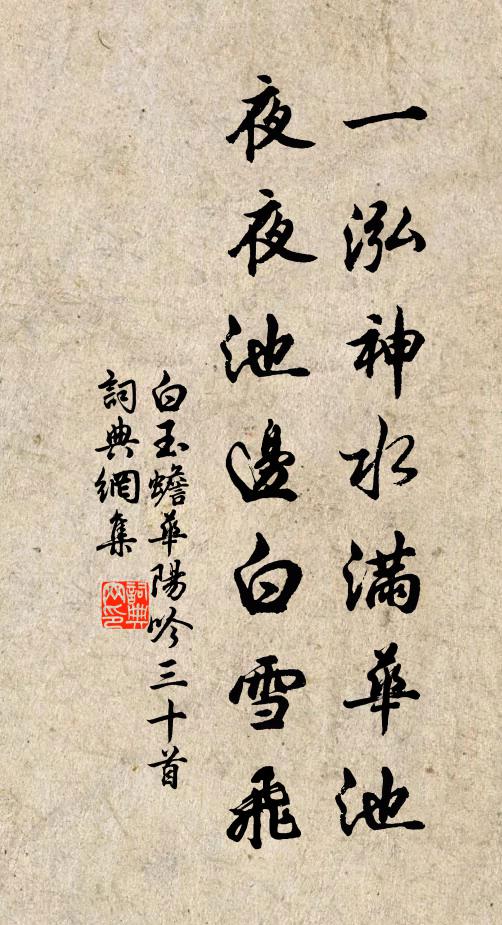 一泓神水满華池
夜夜池邊白雪飛
白玉蟾華陽吟三十首
詞典網集
詞典
网印